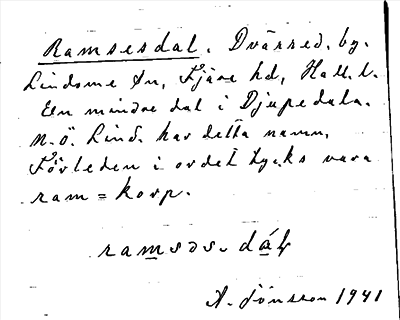 Ramsesdal. Dvärred, by.
Lindome sn, Fjäre hd, Hall. l.
En mindre dal i Djupedala.
n.ö. Lind. har detta namn.
Förleden i ordet tycks vara
ram = korp.
ramsəs- dáƚ
A. Jönsson 1941